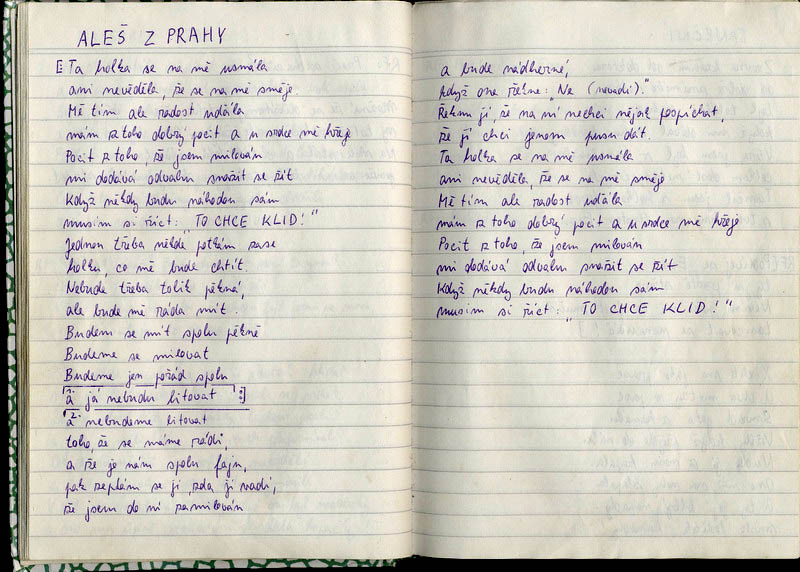 ALEŠ Z PRAHY
[: Ta holka se na mě usmála
ani nevěděla, že se na mě směje
Mě tím ale radost udála
mám z toho dobrý pocit a u srdce mě hřeje
Pocit z toho, že jsem milován
mi dodává odvahu snažit se žít
Když někdy budu náhodou sám
musím si říct: "TO CHCE KLID!"
Jednou třeba někde potkám zase
holku, co mě bude chtít.
Nebude třeba tolik pěkná,
ale bude mě ráda mít.
Budem se mít spolu pěkně
Budeme se milovat
Budeme jen pořád spolu
1. a já nebudu litovat :]
2. a nebudeme litovat
toho, že se máme rádi,
a že je nám spolu fajn,
pak zeptám se jí, zda jí vadí,
že jsem do ní zamilován
a bude nádherné,
když ona řekne: "Ne (nevadí)."
Řeknu jí, že na ni nechci nějak pospíchat,
že jí chci jenom pusu dát.
Ta holka se na mě usmála
ani nevěděla, že se na mě směje
Mě tím ale radost udála
mám z toho dobrý pocit a u srdce mě hřeje
Pocit z toho, že jsem milován
mi dodává odvahu snažit se žít
Když někdy budu náhodou sám
musím si říct: "TO CHCE KLID!"